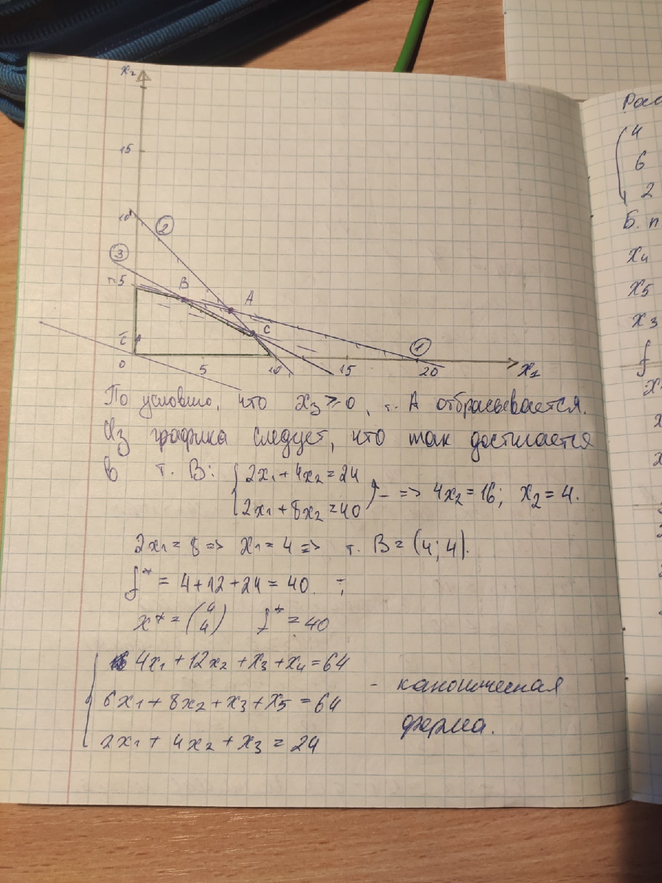 x₂
15
10
②
③
5
B
A
C
①
0
5
10
15
20
x₁
По условию, что x₃ ≥ 0, т. А отбрасывается.
Из графика следует, что max достигается
в т. B: { 2x₁ + 4x₂ = 24
2x₁ + 8x₂ = 40 - => 4x₂ = 16; x₂ = 4.
2x₁ = 8 => x₁ = 4 => т. B = (4; 4).
f* = 4 + 12 + 24 = 40.
x* = (4 4) f* = 40
4x₁ + 12x₂ + x₃ + x₄ = 64
6x₁ + 8x₂ + x₃ + x₅ = 64
2x₁ + 4x₂ + x₃ = 24
- каноническая
форма.
4
6
2
Б. п
x₄
x₅
x₃
f